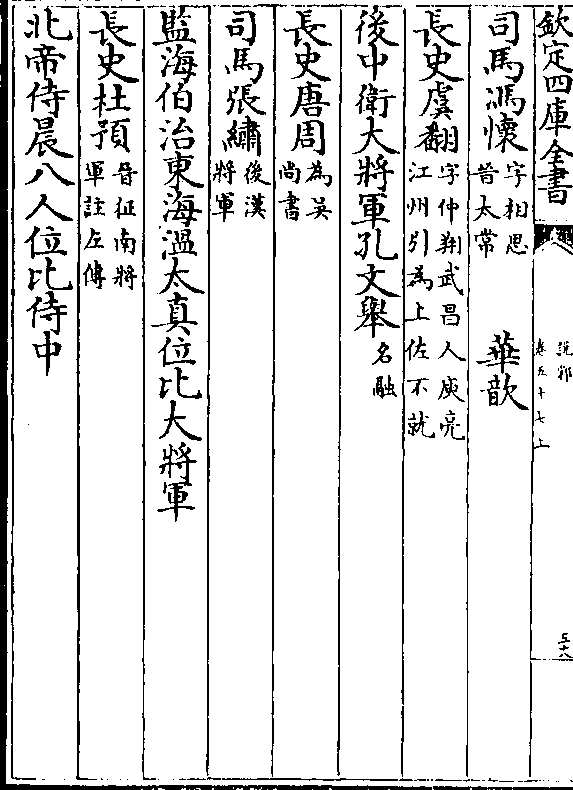 欽定四庫全書
說郛
卷五十七上
五十八
司馬馮懷字相思晉太常 華歆
長史虞翻字仲翔武昌人庾亮江州引為上佐不就
後中衛大將軍孔文舉名融
長史唐周為吴尚書
司馬張繡後漢將軍
監海伯治東海温太真位比大將軍
長史杜預晉征南將軍註左傳
北帝侍晨八人位比侍中